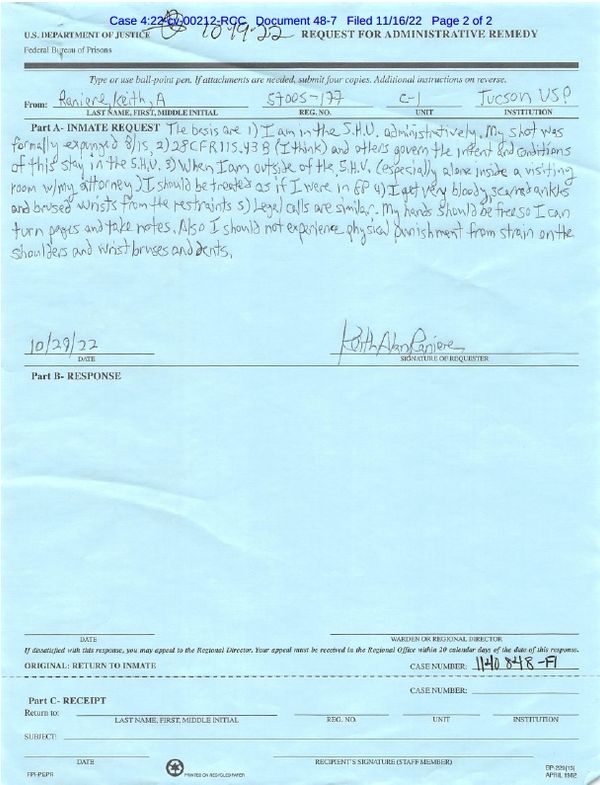 Case 4:22-cv-00212-RCC Document 48-7 Filed 11/16/22 Page 2 of 2
U.S. DEPARTMENT OF JUSTICE
REQUEST FOR ADMINISTRATIVE REMEDY
Federal Bureau of Prisons
Type or use ball-point pen. If attachments are needed, submit four copies. Additional instructions on reverse.
From: Raniere, Keith, A 57005-177 C-1 Tucson USP
LAST NAME, FIRST, MIDDLE INITIAL REG. NO. UNIT INSTITUTION
Part A- INMATE REQUEST The basis are 1) I am in the S.H.U. administratively. My shot was
formally expunged 8/15, 2) 28CFR115.43B (I think) and others govern the intent and conditions
of this stay in the S.H.U. 3) When I am outside of the S.H.U. (especially alone inside a visiting
room w/my attorney) I should be treated as if I were in GP 4) I get very bloody, scarred ankles
and brused wrists from the restraints 5) Legal calls are similar. My hands should be free so I can
turn pages and take notes. Also I should not experience physical punishment from strain on the
shoulders and wrist bruses and dents.
10/29/22 Keith Alan Raniere
DATE SIGNATURE OF REQUESTER
Part B- RESPONSE
DATE WARDEN OR REGIONAL DIRECTOR
If dissatisfied with this response, you may appeal to the Regional Director. Your appeal must be received in the Regional Office within 20 calendar days of the date of this response.
ORIGINAL: RETURN TO INMATE CASE NUMBER: 1140848-F1
CASE NUMBER:
Part C- RECEIPT
Return to:
LAST NAME, FIRST, MIDDLE INITIAL REG. NO. UNIT INSTITUTION
SUBJECT:
DATE RECIPIENT'S SIGNATURE (STAFF MEMBER)
PRINTED ON RECYCLED PAPER
BP-229(13)
APRIL 1982